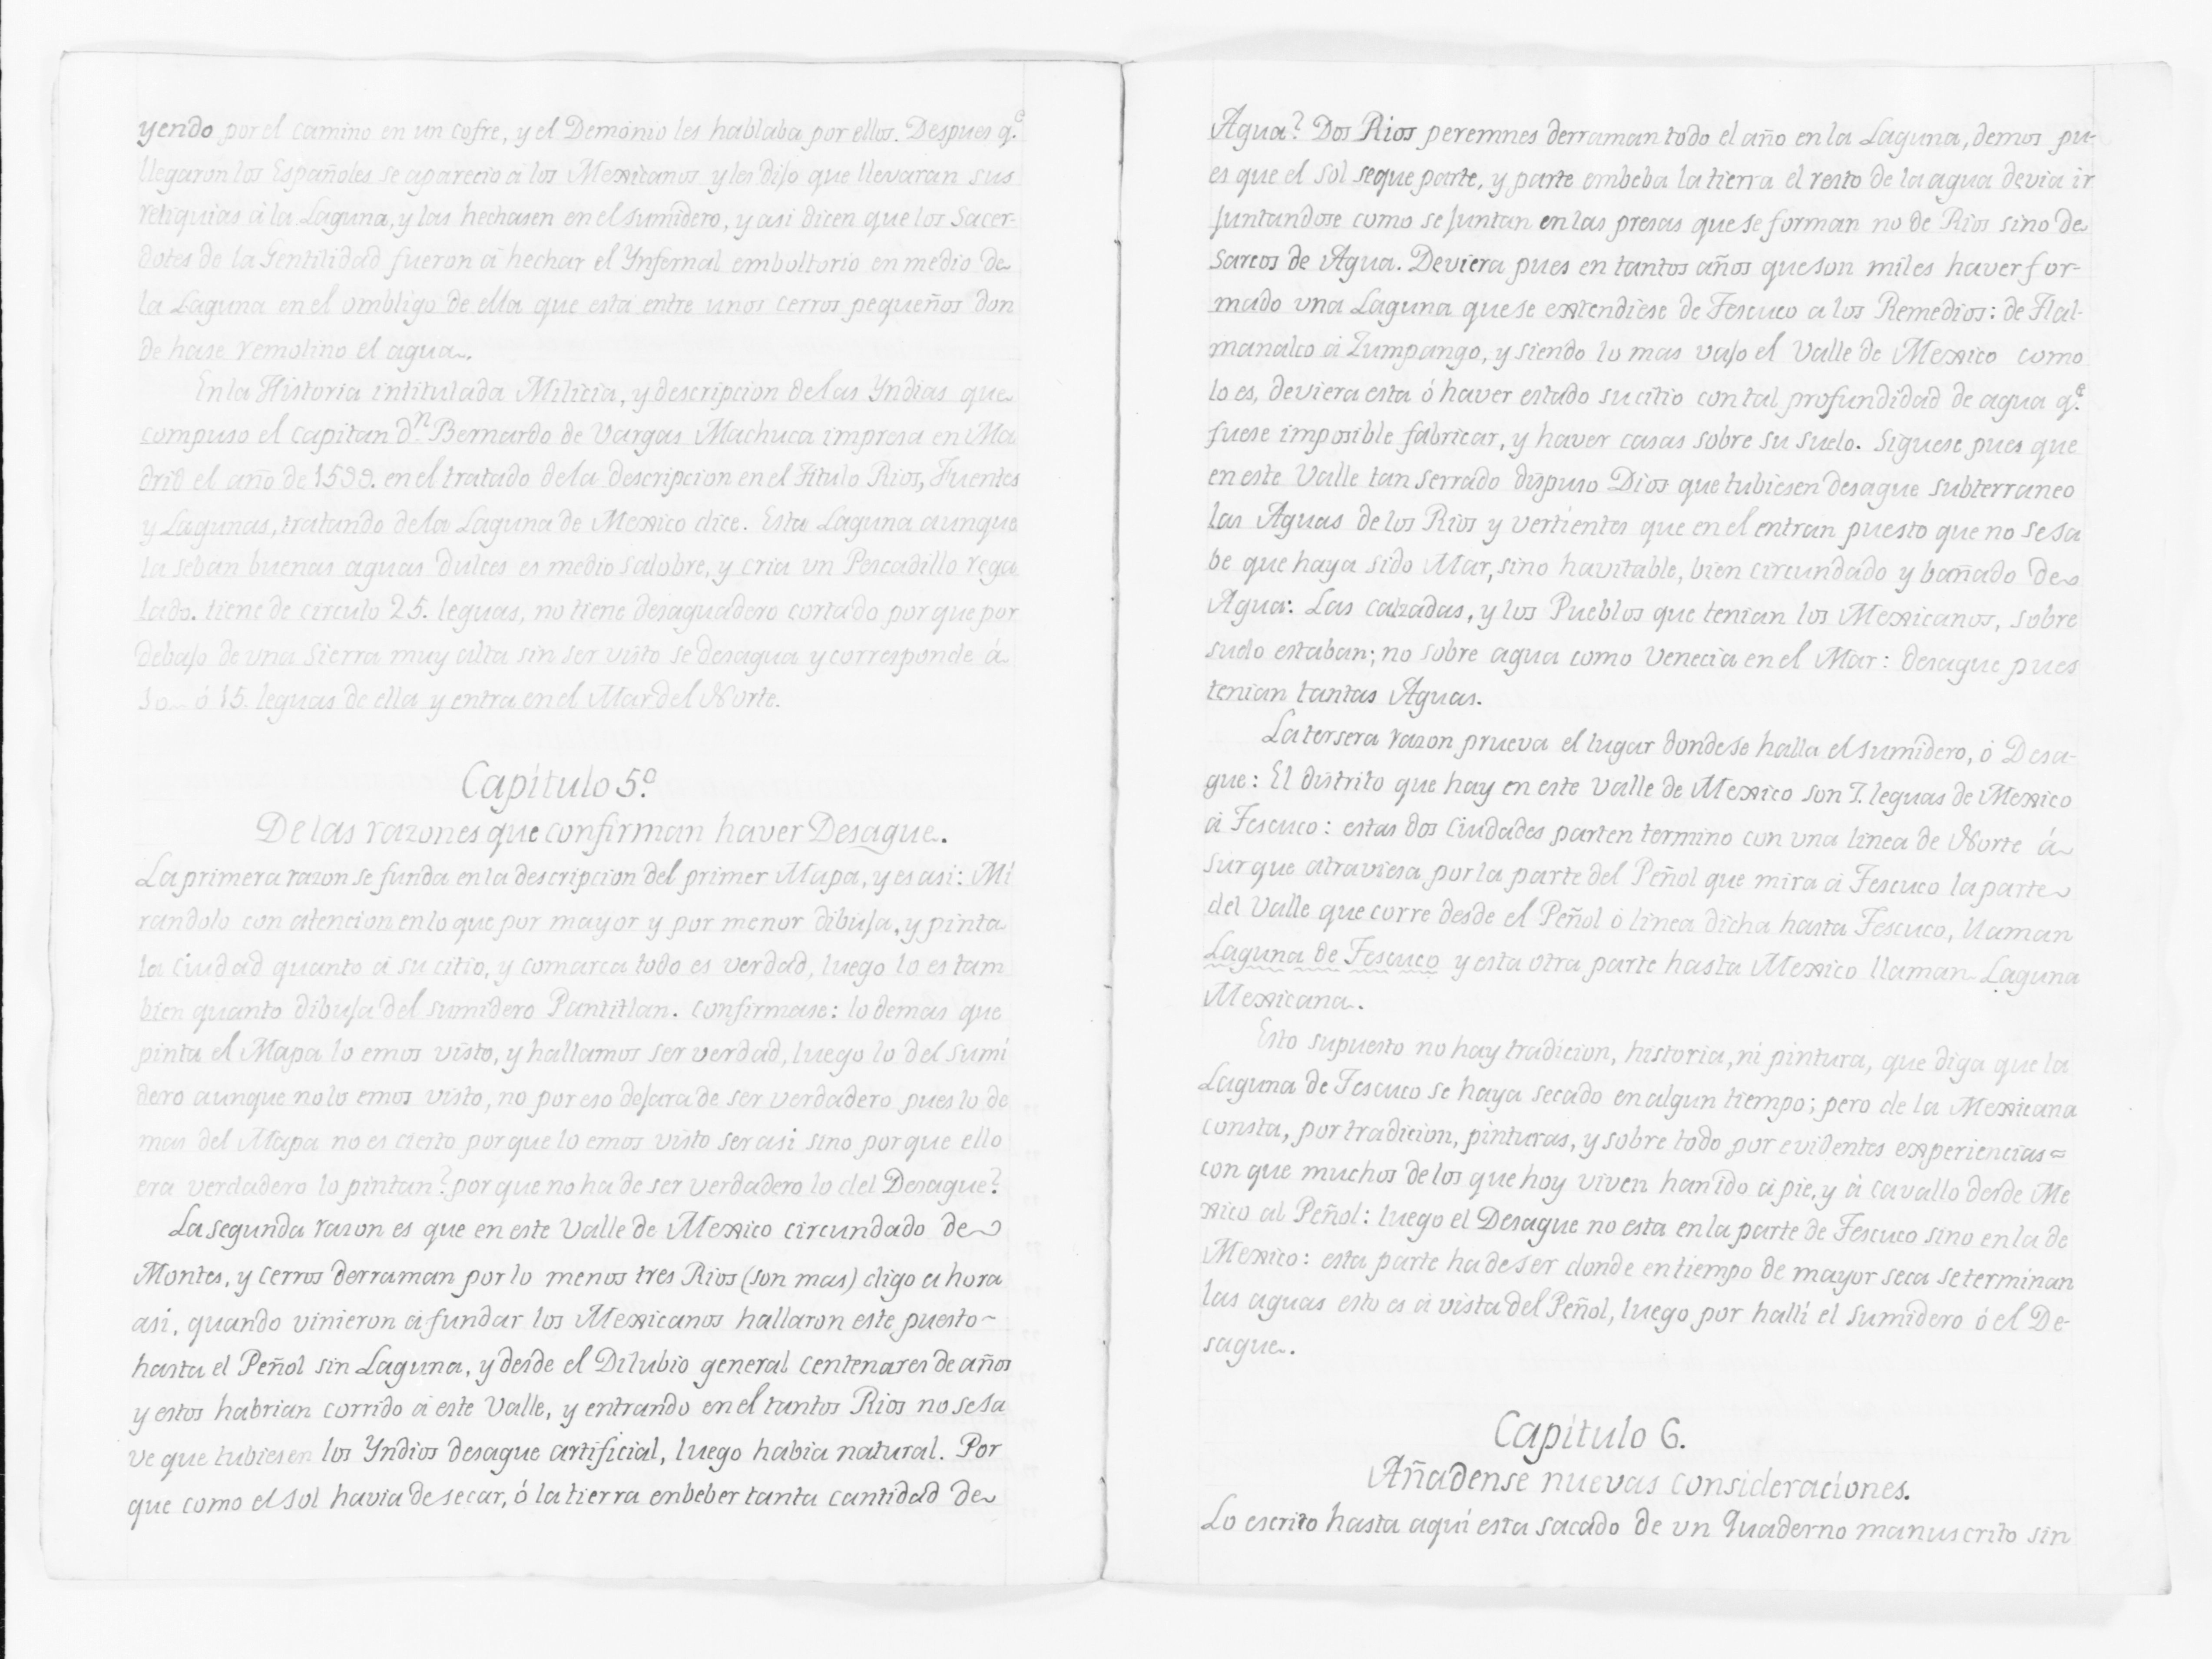 yendo por el camino en un cofre, y el Demonio les hablaba por ellos. Despues q.e
llegaron los Españoles se aparecio a los Mexicanos y les dijo que llevaran sus
reliquias á la Laguna, y las hechasen en el sumidero, y asi dicen que los Sacer-
dotes de la Gentilidad fueron á hechar el Ynfernal emboltorio en medio de
la Laguna en el ombligo de ella que está entre unos cerros pequeños don
de hase remolino el agua.
En la Historia intitulada Milicia, y descripcion de las Yndias que
compuso el Capitan d.n Bernardo de Vargas Machuca impresa en Ma
drid el año de 1599. en el tratado de la descripcion en el Titulo Rios, Fuentes
y Lagunas, tratando de la Laguna de Mexico dice. Esta Laguna aunque
la seban buenas aguas dulces es medio salobre, y cria un Pescadillo rega
lado. tiene de circulo 25. leguas, no tiene desaguadero cortado por que por
debajo de una Sierra muy alta sin ser visto se desagua y corresponde á
10 ó 15. leguas de ella y entra en el Mar del Norte.
Capítulo 5.o
De las razones que confirman haver Desague.
La primera razon se funda en la descripcion del primer Mapa, y es asi: Mi
randolo con atencion en lo que por mayor y por menor dibuja, y pinta
la Ciudad quanto á su citio, y comarca todo es verdad, luego lo es tam
bien quanto dibuja del sumidero Pantitlan. Confirmase: lo demas que
pinta el Mapa lo emos visto, y hallamos ser verdad, luego lo del Sumi
dero aunque no lo emos visto, no por eso dejara de ser verdadero pues lo de
mas del Mapa no es cierto por que lo emos visto ser asi sino por que ello
era verdadero lo pintan? por que no ha de ser verdadero lo del Desague?
La segunda razon es que en este Valle de Mexico circundado de
Montes, y Cerros derraman por lo menos tres Rios (son mas) digo ahora
asi, quando vinieron á fundar los Mexicanos hallaron este puesto~
hasta el Peñol sin Laguna, y desde el Dilubio general Centenares de años
y estos habrian corrido á este Valle, y entrando en el tantos Rios no se sa
ve que tubiesen los Yndios desague artificial, luego habia natural. Por
que como el Sol havia de secar, ó la tierra enbeber tanta cantidad de
Agua? Dos Rios peremnes derraman todo el año en la Laguna, demos pu-
es que el Sol seque parte, y parte embeba la tierra el resto de la agua devia ir
juntandose como se juntan en las presas que se forman no de Rios sino de
Sarcos de Agua. Deviera pues en tantos años que son miles haver for-
mado una Laguna que se extendiese de Tescuco a los Remedios: de Tlal-
manalco á Zumpango, y siendo lo mas vajo el Valle de Mexico como
lo es, deviera esta ó haver estado su citio con tal profundidad de agua q.e
fuese imposible fabricar, y haver casas sobre su suelo. Siguese pues que
en este Valle tan serrado dispuso Dios que tubiesen desague subterraneo
las Aguas de los Rios y vertientes que en el entran puesto que no se sa
be que haya sido Mar, sino havitable, bien circundado y bañado de
Agua: Las calzadas, y los Pueblos que tenian los Mexicanos, sobre
suelo estaban; no sobre agua como Venecia en el Mar: desague pues
tenian tantas Aguas.
La tersera razon prueva el lugar donde se halla el sumidero, ó Desa-
gue: El distrito que hay en este Valle de Mexico son 7. leguas de Mexico
á Tescuco: estas dos Ciudades parten termino con una linea de Norte á
Sur que atraviesa por la parte del Peñol que mira á Tescuco la parte
del Valle que corre desde el Peñol ó linea dicha hasta Tescuco, llaman
Laguna de Tescuco y esta otra parte hasta Mexico llaman Laguna
Mexicana.
Esto supuesto no hay tradicion, historia, ni pintura, que diga que la
Laguna de Tescuco se haya secado en algun tiempo; pero de la Mexicana
consta, por tradicion, pinturas, y sobre todo por evidentes experiencias=
con que muchos de los que hoy viven han ido á pie, y á cavallo desde Me
xico al Peñol: luego el Desague no esta en la parte de Tescuco sino en la de
Mexico: esta parte ha de ser donde en tiempo de mayor seca se terminan
las aguas esto es á vista del Peñol, luego por hallí el Sumidero ó el De-
sague.
Capítulo 6.
Añadense nuevas consideraciones.
Lo escrito hasta aquí esta sacado de un Quaderno manuscrito sin